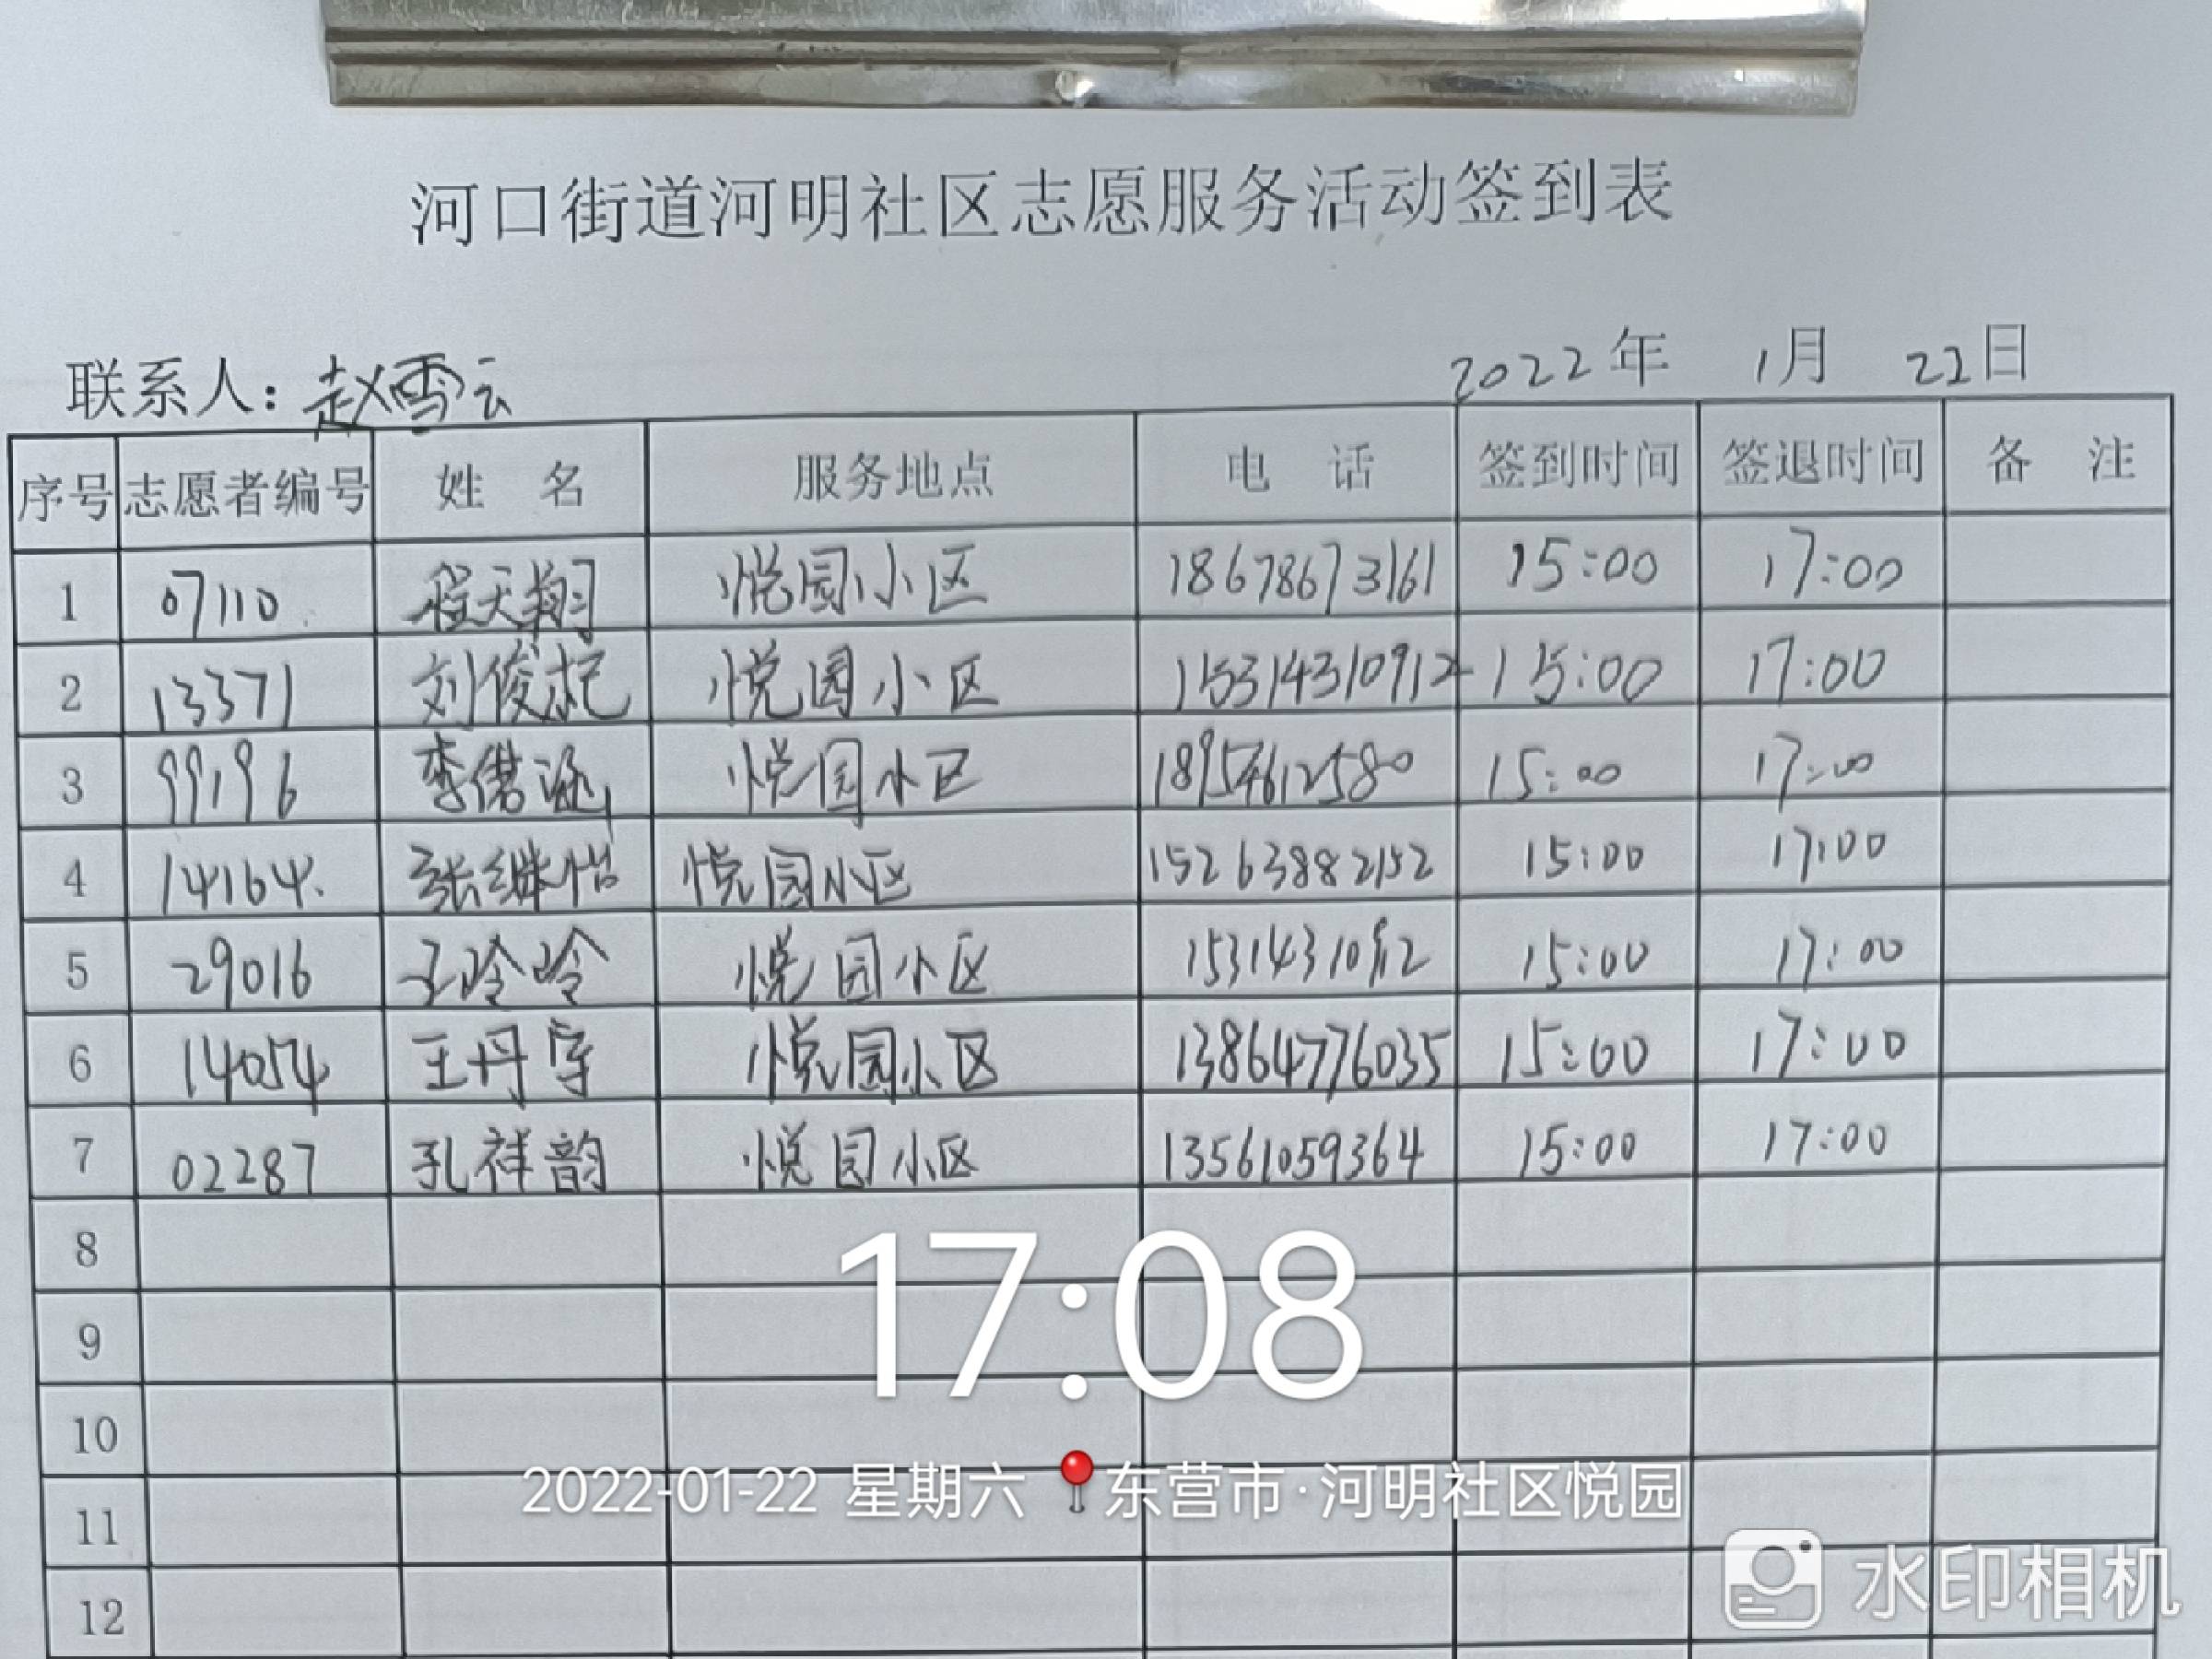 河口街道河明社区志愿服务活动签到表
联系人：赵雪云 2022年 1月 22日
序号 志愿者编号 姓 名 服务地点 电 话 签到时间 签退时间 备 注
1 07110 程天翔 悦园小区 18678673161 15:00 17:00
2 13371 刘俊杞 悦园小区 15314310912 15:00 17:00
3 99196 李儒涵 悦园小区 18954612580 15:00 17:00
4 14164 张继怡 悦园小区 15263882152 15:00 17:00
5 29016 王冷冷 悦园小区 15314310912 15:00 17:00
6 14054 王丹宇 悦园小区 13864776035 15:00 17:00
7 02287 孔祥韵 悦园小区 13561059364 15:00 17:00
8
17:08
9
10
2022-01-22 星期六 东营市·河明社区悦园
11
水印相机
12